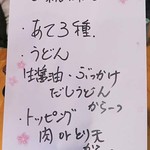 ・あて3種.
・うどん
生醤油・ぶっかけ
だしうどん
から一つ
・トッピング
肉 or とり天
から一つ